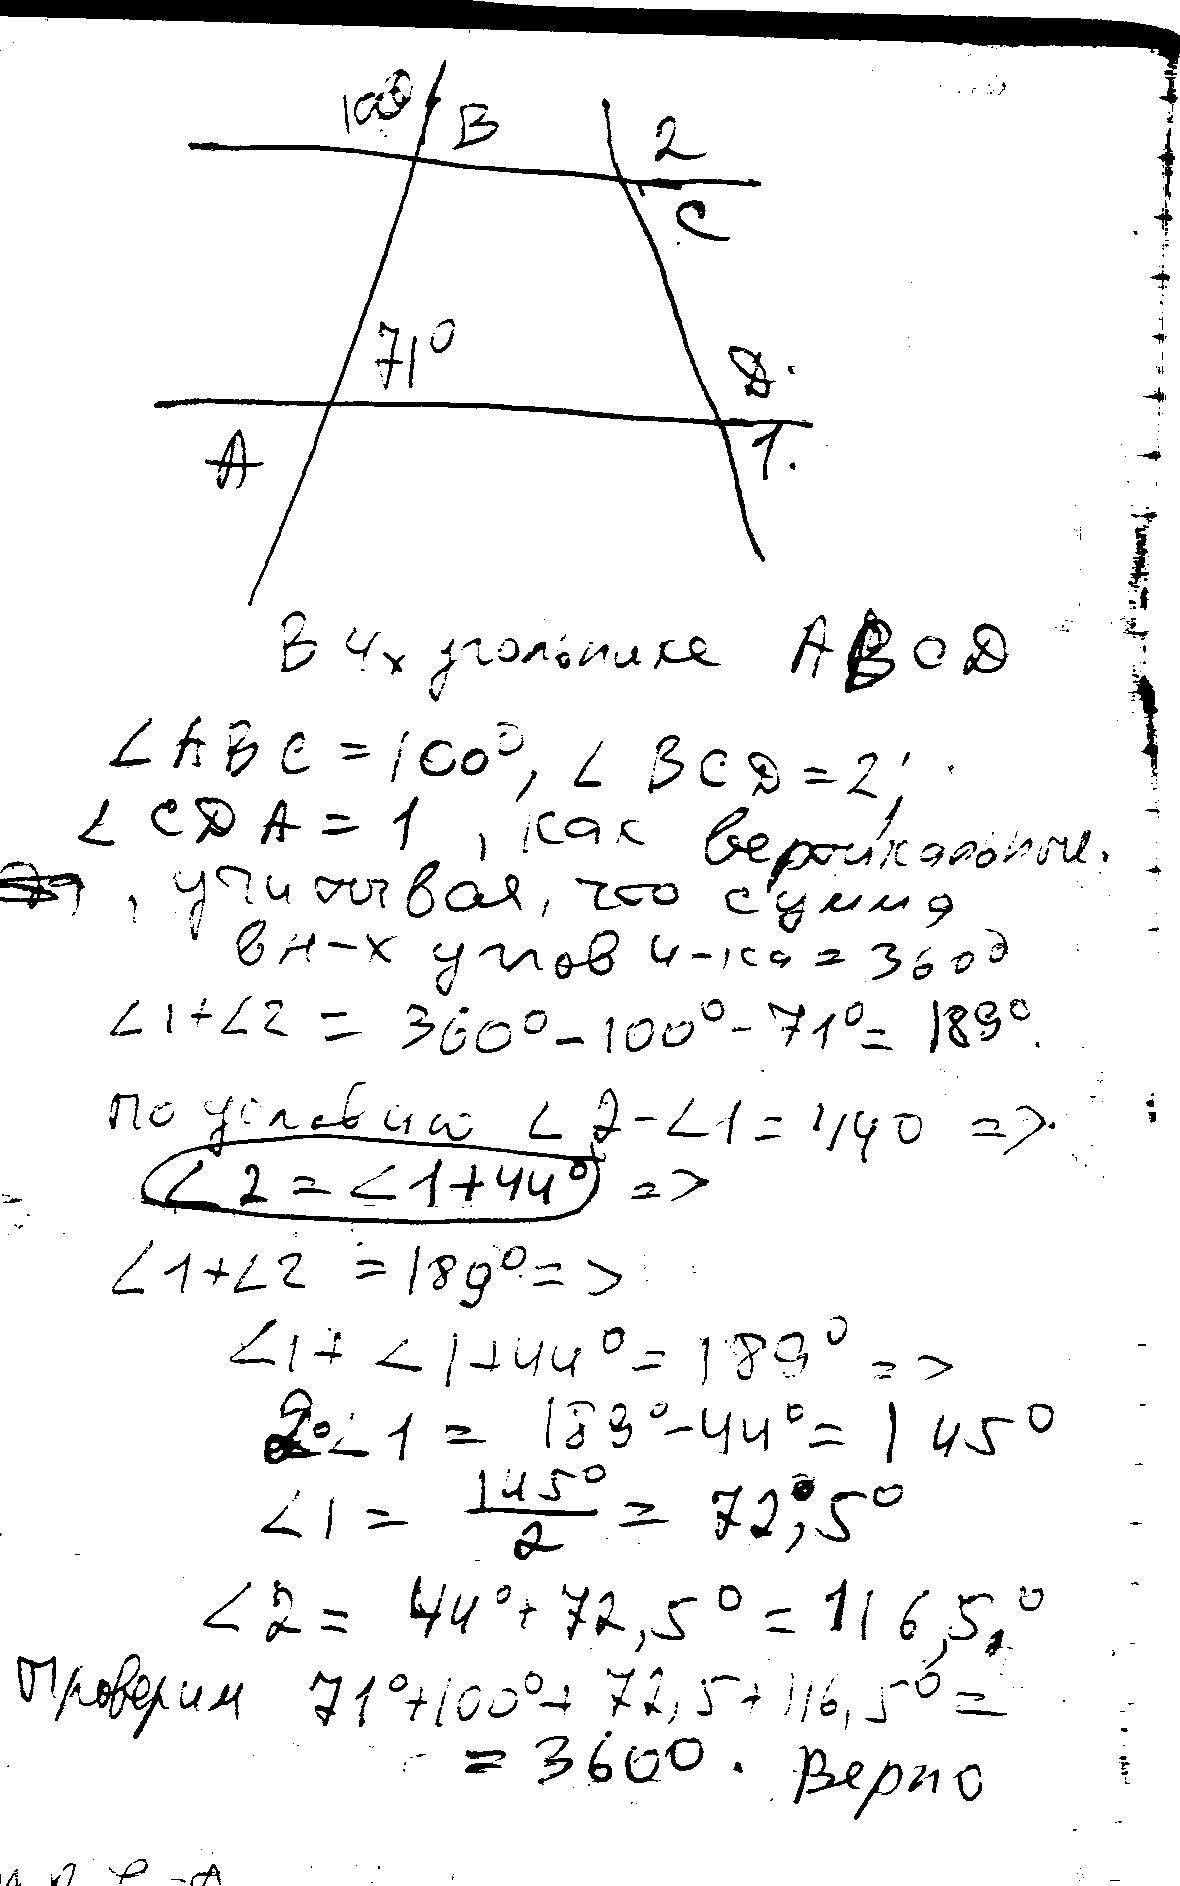 100°
B
2
C
71°
D.
A
1.
В 4х угольнике ABCD
∠ABC = 100°, ∠BCD = 2,
∠CDA = 1, как вертикальные.
, учитывая, что сумма
вн-х углов 4-ка = 360°
∠1+∠2 = 360° - 100° - 71° = 189°.
По условию ∠2 - ∠1 = 440 =>
∠2 = ∠1 + 44° =>
∠1+∠2 = 189° =>
∠1 + ∠1 + 44° = 189° =>
2∠1 = 189° - 44° = 145°
∠1 = 145°/2 = 72,5°
∠2 = 44° + 72,5° = 116,5°
Проверим 71° + 100° + 72,5 + 116,5° =
= 360°. Верно